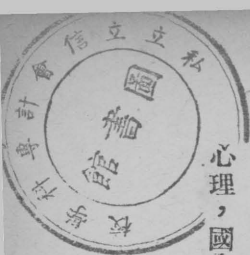 私立立信會計專科學校
圖書館
心理，國